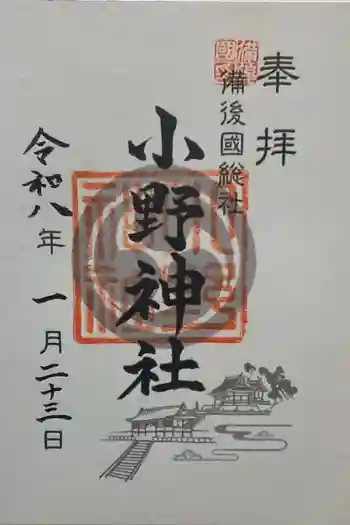 奉拝
備後國総社
小野神社
令和八年
一月二十三日